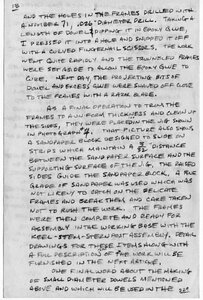 AND THE HOLES IN THE FRAMES DRILLED WITH
A NUMBER 71, .026" DIAMETER DRILL. TAKING A
LENGTH OF DOWEL, DIPPING IT IN EPOXY GLUE,
I PRESSED IT INTO A HOLE AND SNIPPED IT OFF
WITH CURVED FINGERNAIL SCISSORS. THE WORK
WENT QUITE RAPIDLY AND THE TRUNNELED FRAMES
WERE SET ASIDE TO ALLOW THE EPOXY GLUE TO
CURE. NEXT DAY THE PROJECTING BITS OF
DOWEL AND EXCESS GLUE WERE SHAVED OFF CLOSE
TO THE FRAMES WITH A RAZOR BLADE.
AS A FINAL OPERATION TO TRIM THE
FRAMES TO A UNIFORM THICKNESS AND CLEAN UP
THE SIDES, THEY WERE PLACED IN THE JIG SHOWN
IN PHOTOGRAPH 4. THAT PICTURE ALSO SHOWS
A SANDPAPER BLOCK DESIGNED TO SLIDE ON
STEPS WHICH MAINTAIN A DISTANCE
BETWEEN THE SANDPAPER SURFACE AND THE
SUPPORTING SURFACE OF THE JIG. THE RAISED
SIDES GUIDE THE SANDPAPER BLOCK. A FINE
GRADE OF SANDPAPER WAS USED WHICH WAS
NOT LIKELY TO CATCH ON THE DELICATE
FRAMES AND BREAK THEM, AND CARE TAKEN
NOT TO RUSH THE WORK. THE FRAMES
WERE THEN COMPLETE AND READY FOR
ASSEMBLY IN THE WORKING BASE WITH THE
KEEL-STEM-STERN POST ASSEMBLY. DETAIL
DRAWINGS FOR THESE ITEMS ALONG WITH
A FULL DESCRIPTION OF THE WORK WILL BE
FURNISHED IN THE NEXT ARTICLE.
ONE FINAL WORD ABOUT THE MAKING
OF SMALL DIAMETER DOWELS MENTIONED
ABOVE AND WHICH WILL BE USED IN THE